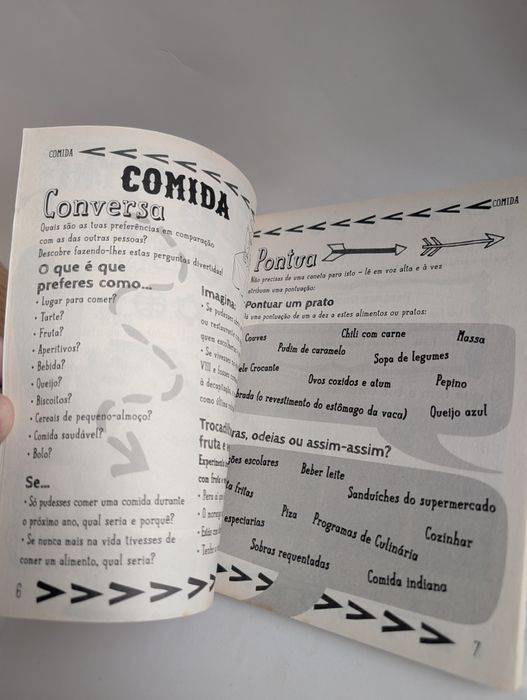 COMIDA
COMIDA
Conversa
Quais são as tuas preferências em comparação
com as das outras pessoas?
Descobre fazendo-lhes estas perguntas divertidas!
O que é que
preferes como...
• Lugar para comer?
• Tarte?
• Fruta?
• Aperitivos?
• Bebida?
• Queijo?
• Biscoitos?
• Cereais de pequeno-almoço?
• Comida saudável?
• Bolo?
Se...
• Só pudesses comer uma comida durante
o próximo ano, qual seria e porquê?
• Se nunca mais na vida tivesses de
comer um alimento, qual seria?
6
Imagina:
• Se pudesses
ou restaurante
quem escolherias
• Se vivesses
VIII e fosses
à decapitação
como última
Trocadi
fruta e
Experimenta
com fruta
• Pera
• O morango
• Estás
• Tenho
COMIDA
Pontua
Não precisas de uma caneta para isto – lê em voz alta e à vez
atribuam uma pontuação:
Pontuar um prato
Dá uma pontuação de um a dez a estes alimentos ou pratos:
Couves
Chili com carne
Massa
Pudim de caramelo
Sopa de legumes
Crocante
Ovos cozidos e atum
Pepino
(o revestimento do estômago da vaca)
Queijo azul
odeias ou assim-assim?
escolares
Beber leite
fritas
Sanduíches do supermercado
especiarias
Piza
Programas de Culinária
Cozinhar
Sobras requentadas
Comida indiana
7